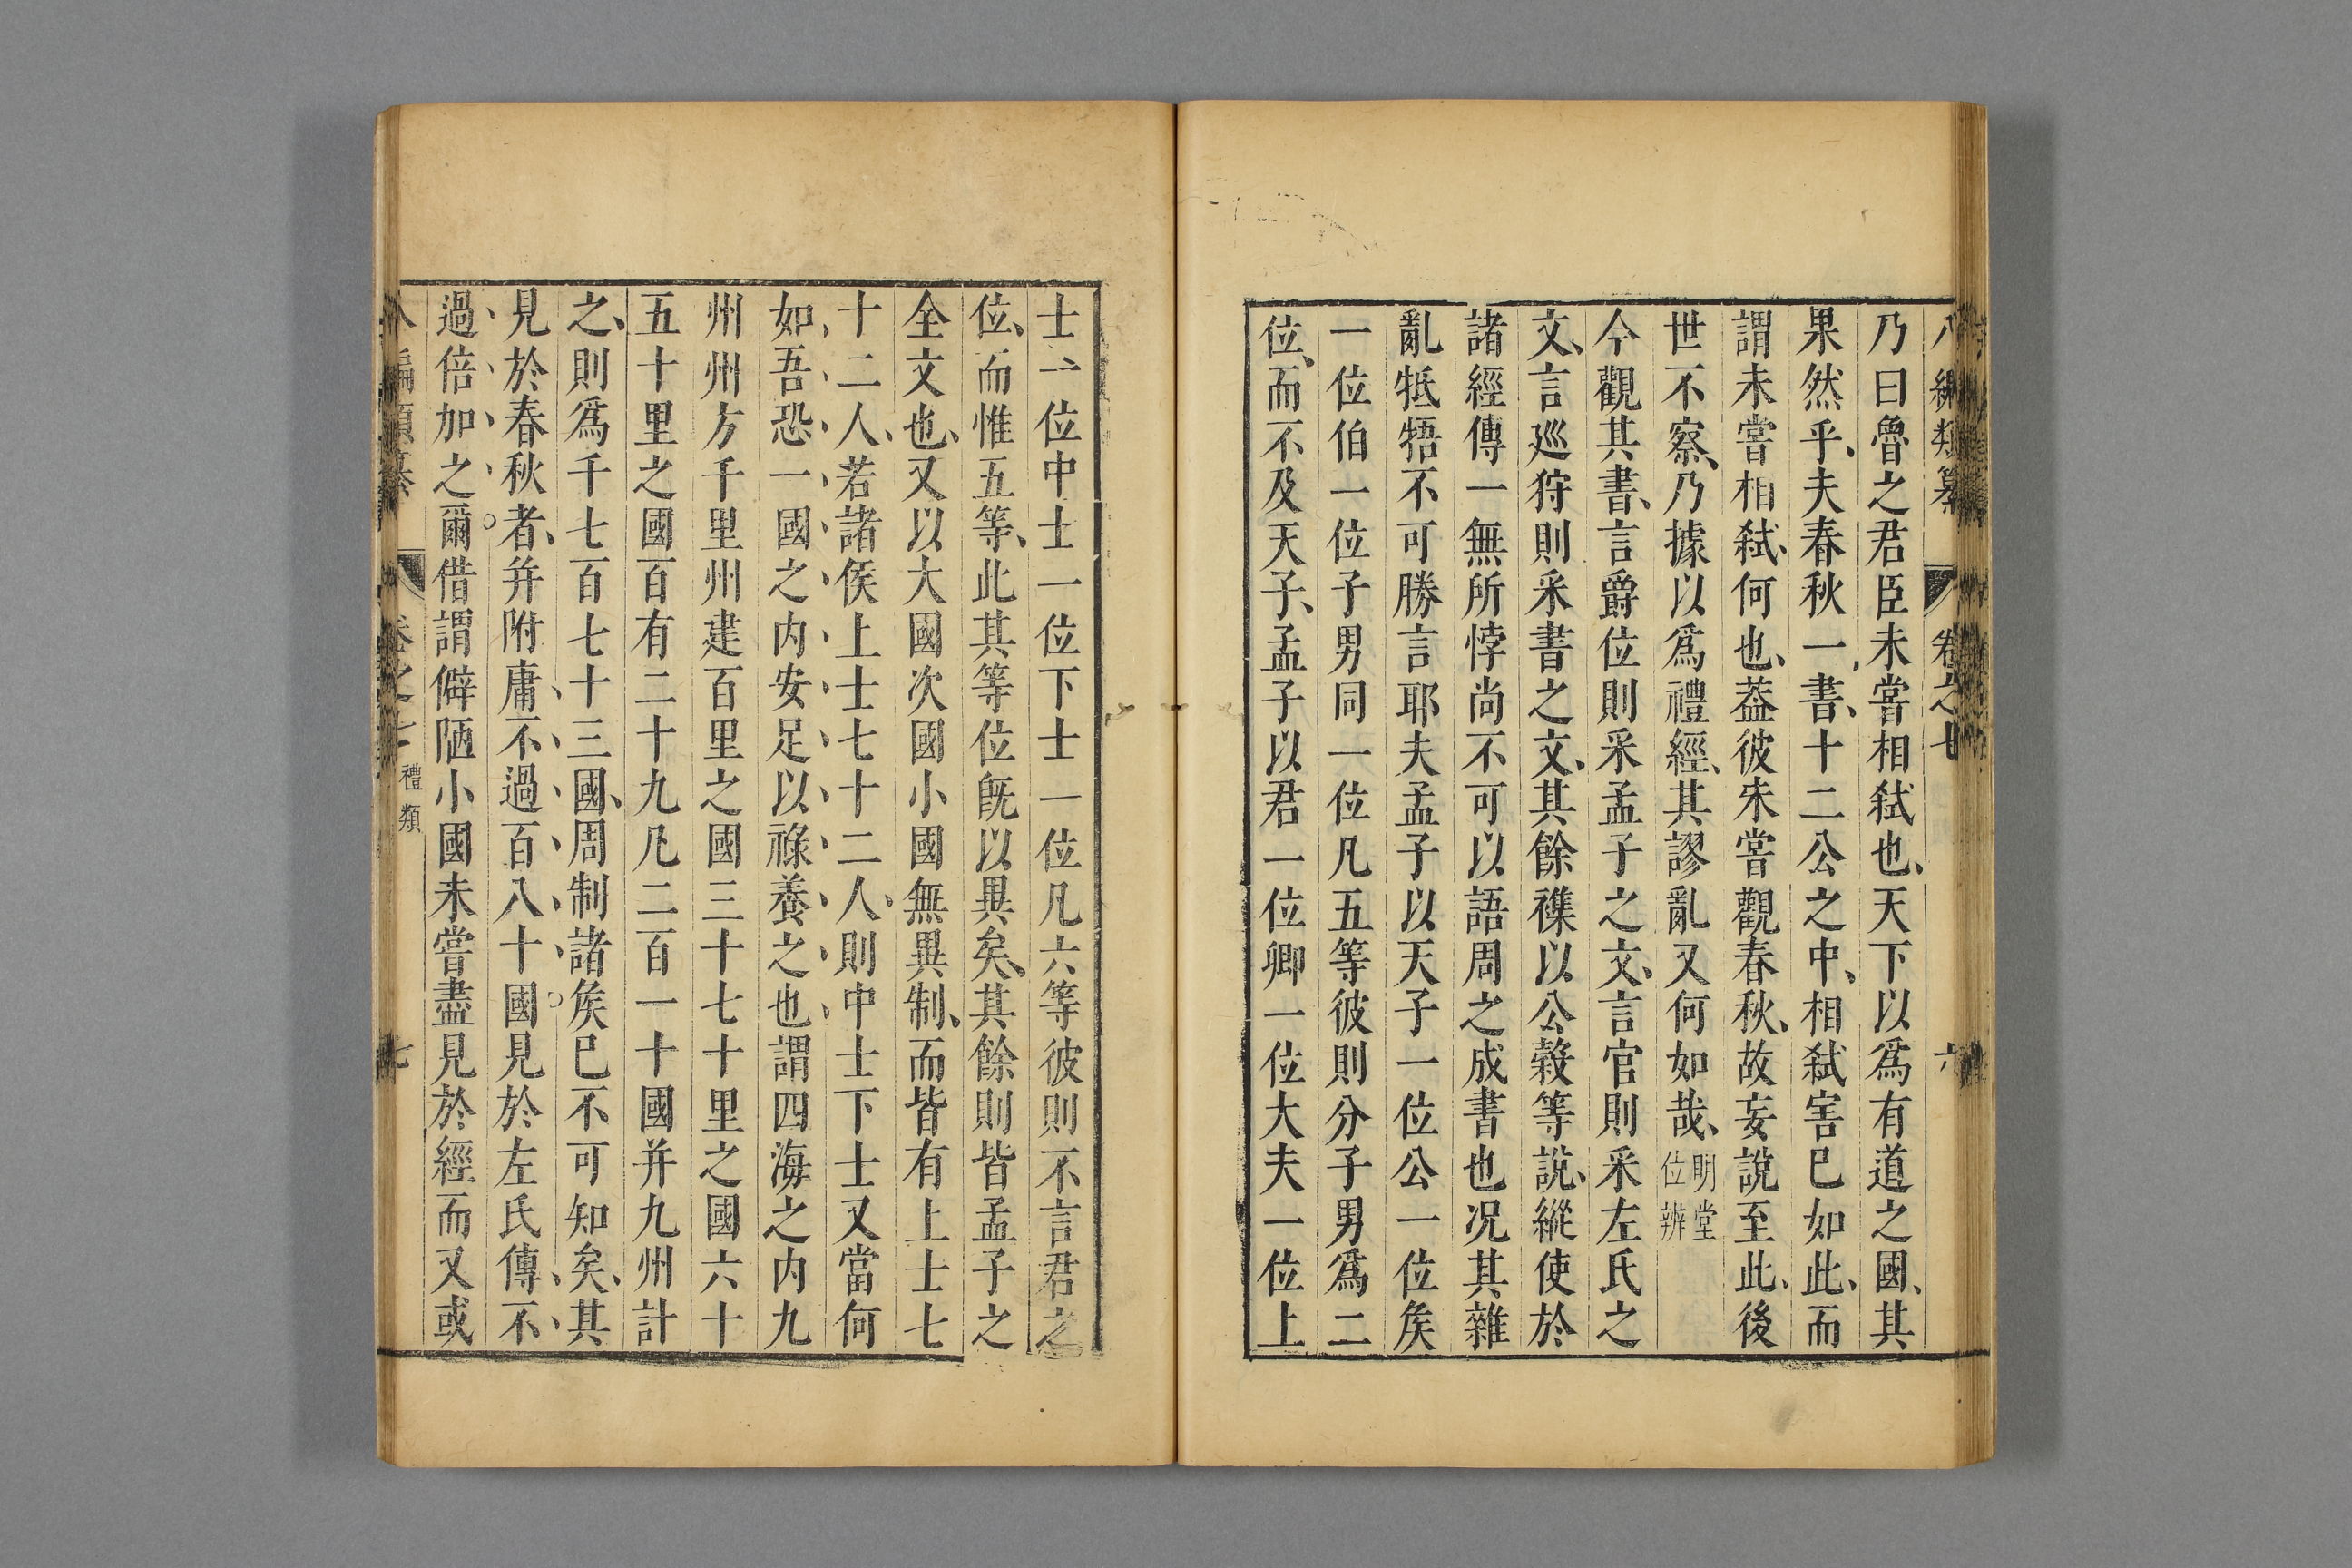 八編類纂 卷之廿 六
乃曰魯之君臣未嘗相弑也、天下以爲有道之國、其
果然乎、夫春秋一書、十二公之中、相弑害已如此、而
謂未嘗相弑、何也、葢彼未嘗觀春秋、故妄說至此、後
世不察、乃據以爲禮經、其謬亂又何如哉、明堂位辨
今觀其書、言爵位則采孟子之文、言官則采左氏之
文、言巡狩則采書之文、其餘襍以公穀等說、縱使於
諸經傳一無所悖尚不可以語周之成書也况其雜
亂牴牾不可勝言耶夫孟子以天子一位公一位矦
一位伯一位子男同一位凡五等彼則分子男爲二
位、而不及天子、孟子以君一位卿一位大夫一位上
士一位中士一位下士一位凡六等彼則不言君之
位、而惟五等、此其等位旣以異矣、其餘則皆孟子之
全文也、又以大國次國小國無異制、而皆有上士七
十二人、若諸侯上士七十二人、則中士下士又當何
如、吾恐一國之内安足以祿養之也謂四海之内九
州州方千里州建百里之國三十七十里之國六十
五十里之國百有二十九凡二百一十國并九州計
之、則爲千七百七十三國、周制諸矦已不可知矣、其
見於春秋者、并附庸不過百八十國見於左氏傳不
過倍加之爾借謂僻陋小國未嘗盡見於經而又或
八編類纂 卷之 禮類 七